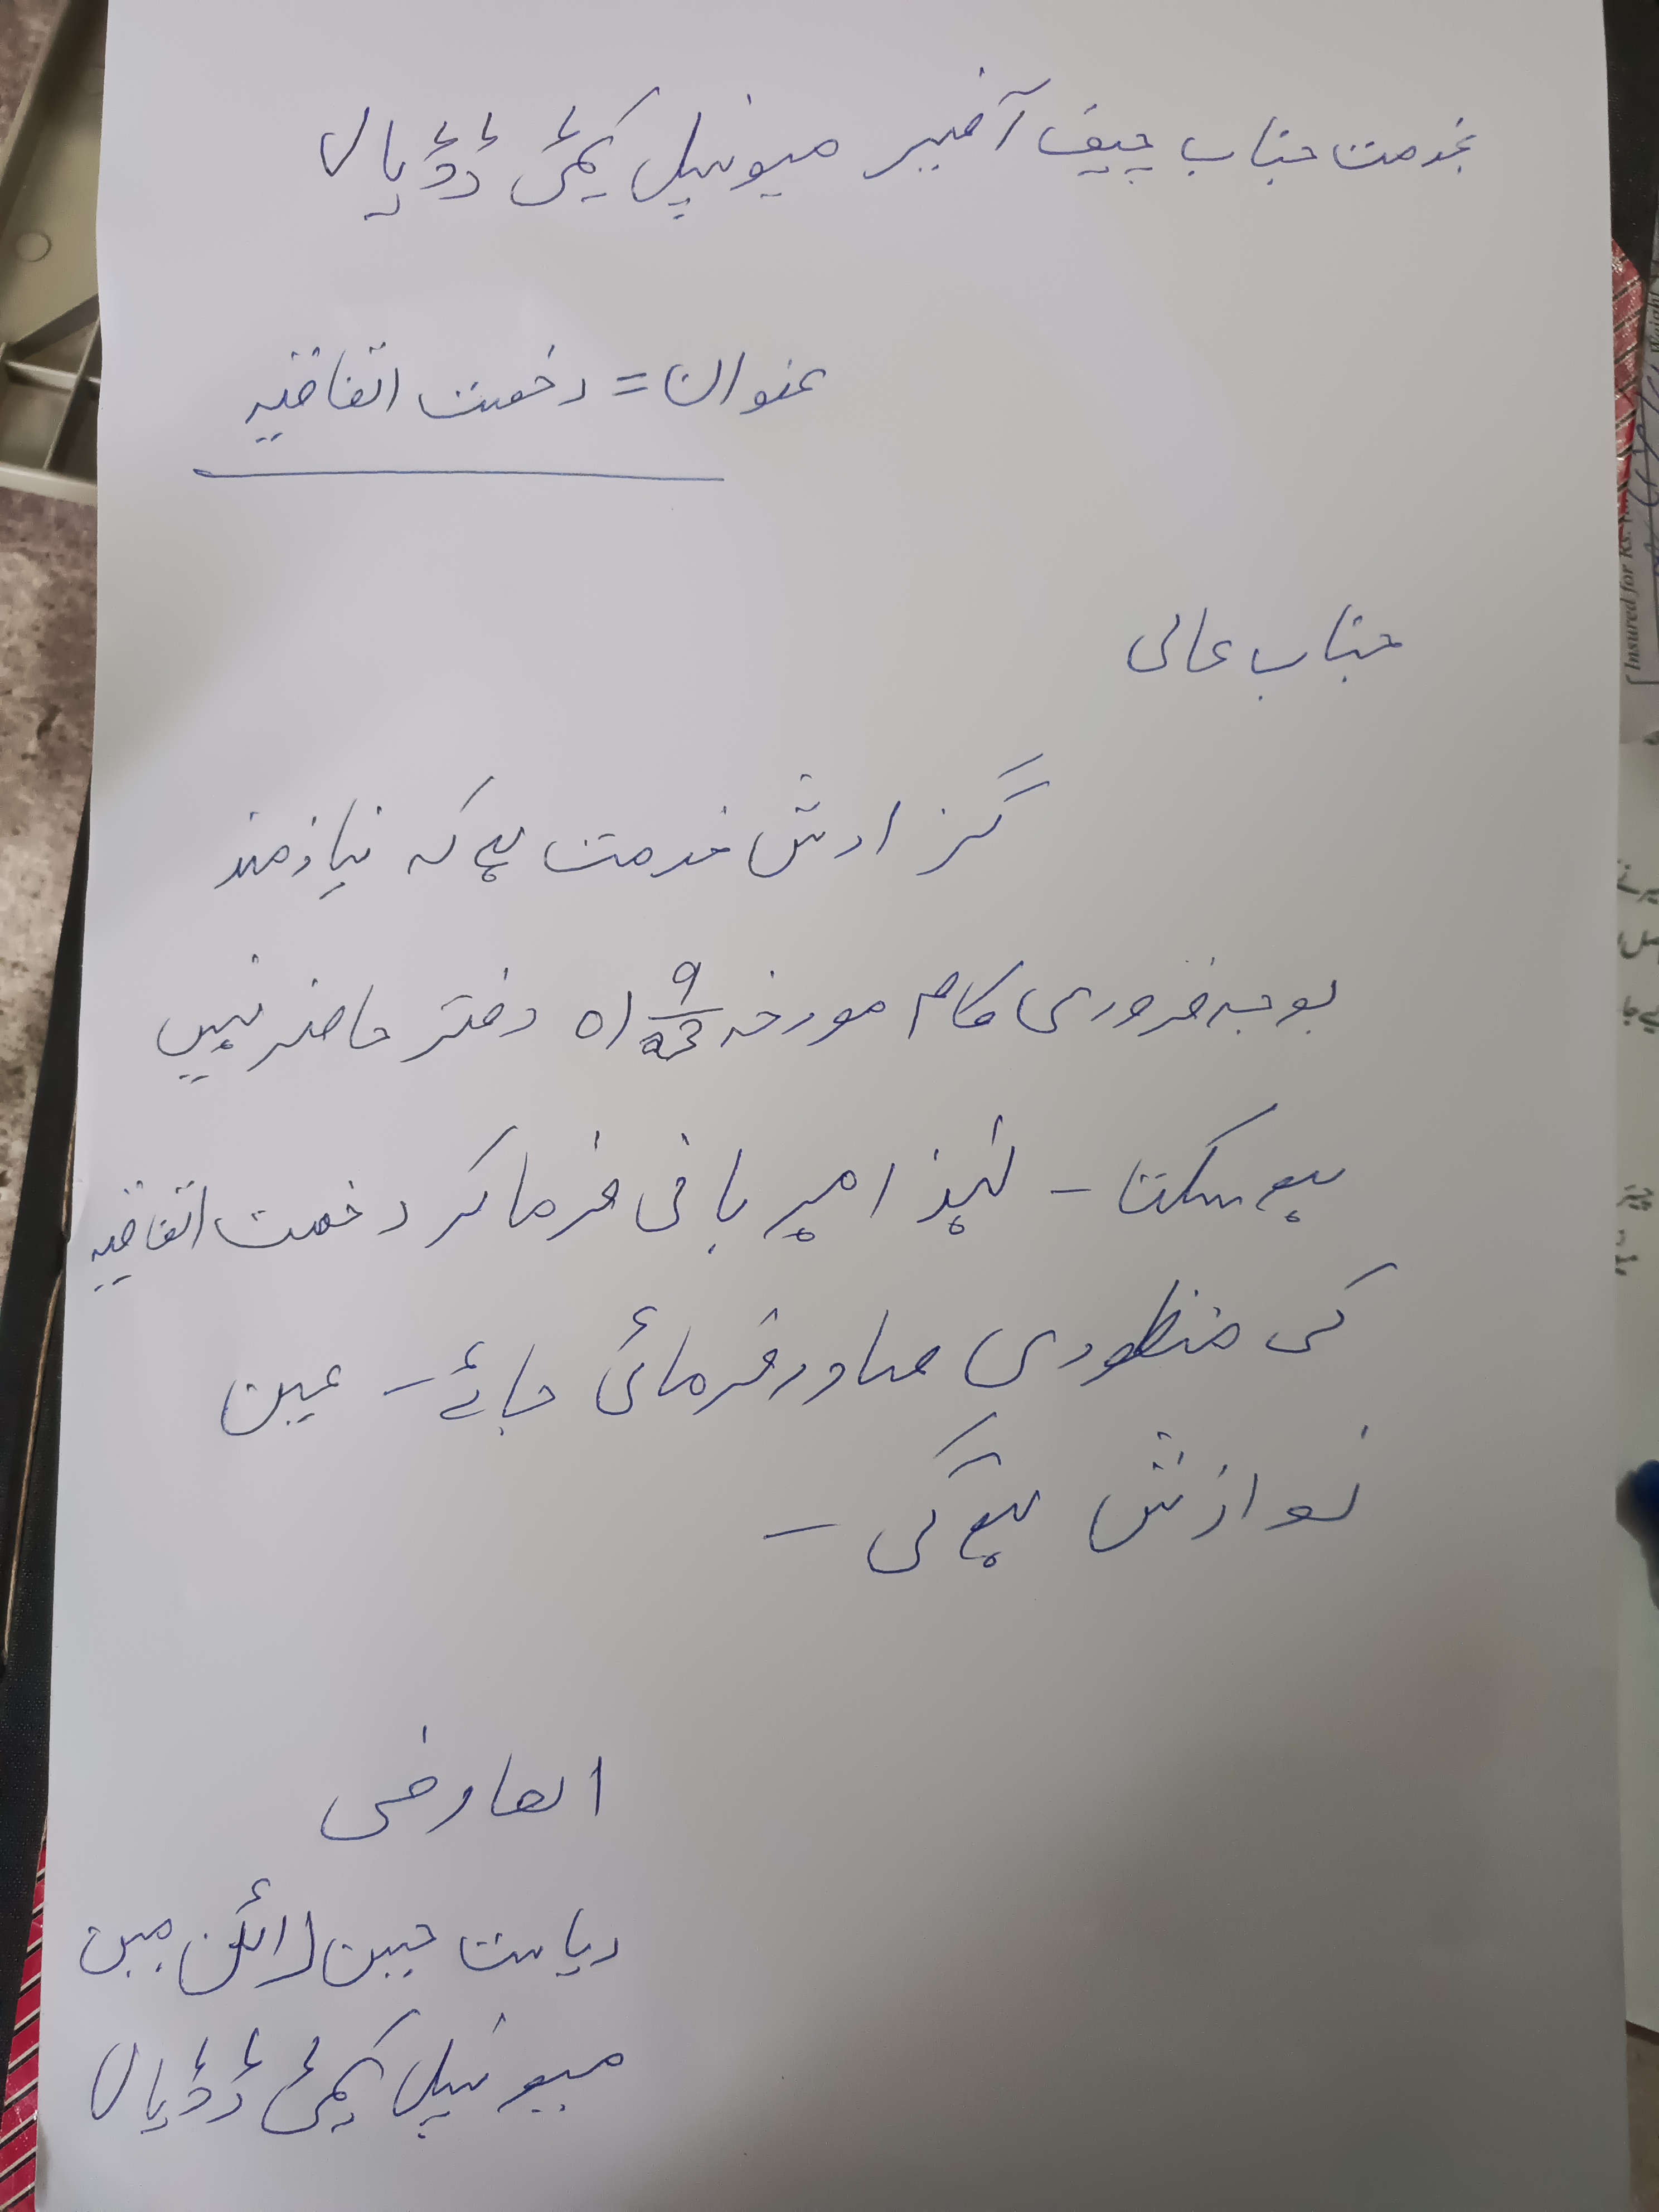 بخدمت جناب چیف آفیسر میونسپل کمیٹی ڈڈیال
عنوان = رخصت اتفاقیہ
جناب عالی
گزارش خدمت ہے کہ نیازمند
بوجہ ضروری کام مورخہ 9 دفتر حاضر نہیں
ہو سکتا - لہذا مہربانی فرما کر رخصت اتفاقیہ
کی منظوری صادر فرمائی جائے - عین
نوازش ہو گی -
العارض
ریاست حسین لائن مین
میونسپل کمیٹی ڈڈیال
Insured for Rs.
Weight